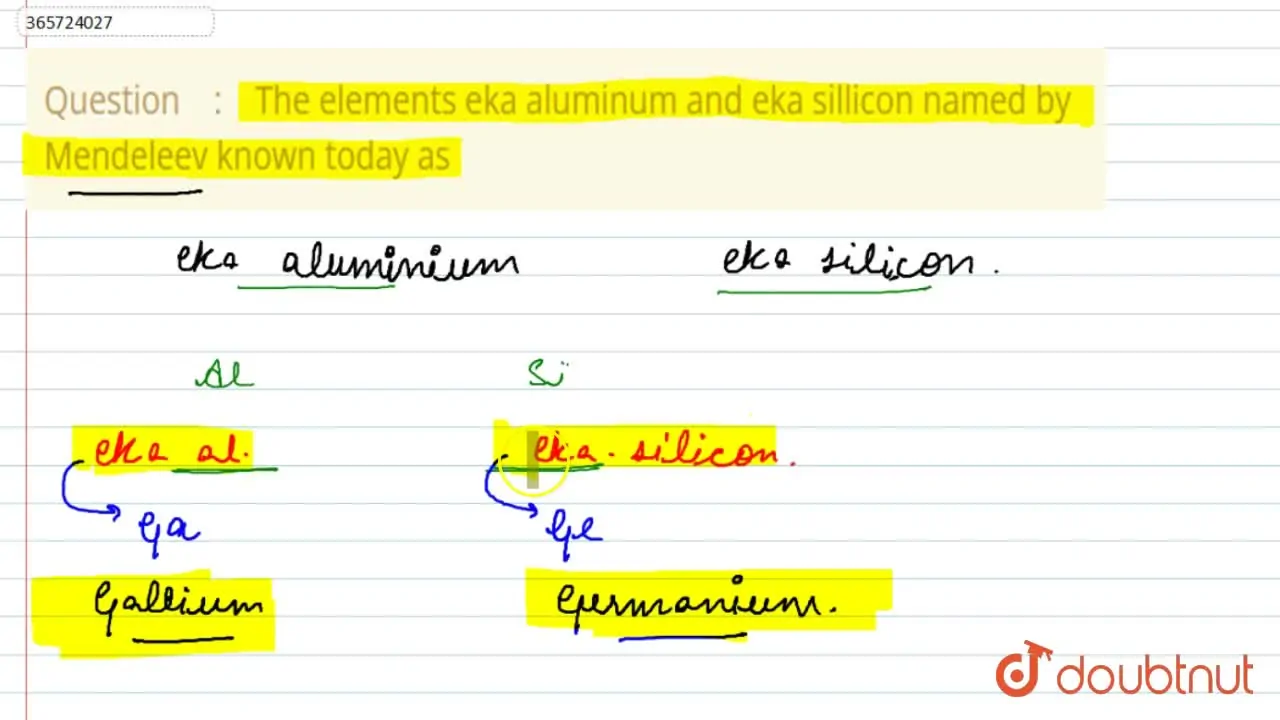 365724027
Question : The elements eka aluminum and eka sillicon named by
Mendeleev known today as
eka aluminium eka silicon.
Al Si
eka al. eka. silicon.
Ga Ge
Gallium Germanium.
doubtnut